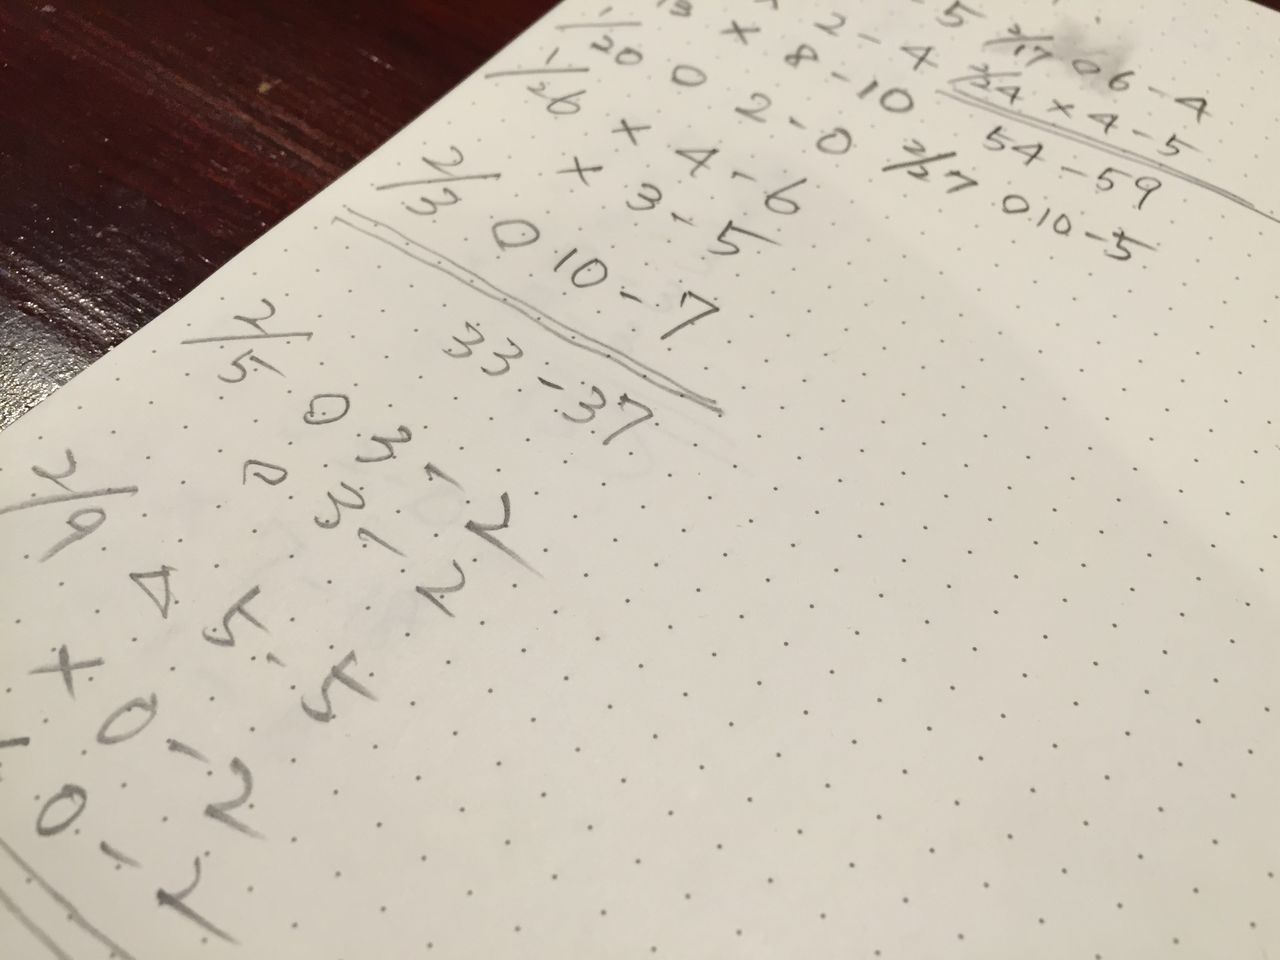 × 2 - 4
1/20 × 8 - 10
1/26 0 2 - 0
× 4 - 6
× 3 - 5
2/3 0 10 - 7
33 - 37
2/5 0 3 - 2
0 3 - 2
2/9 4 5 - 5
× 0 - 2
- 0 - 2
5
2/17 0 6 - 4
2/24 × 4 - 5
54 - 59
2/27 0 10 - 5